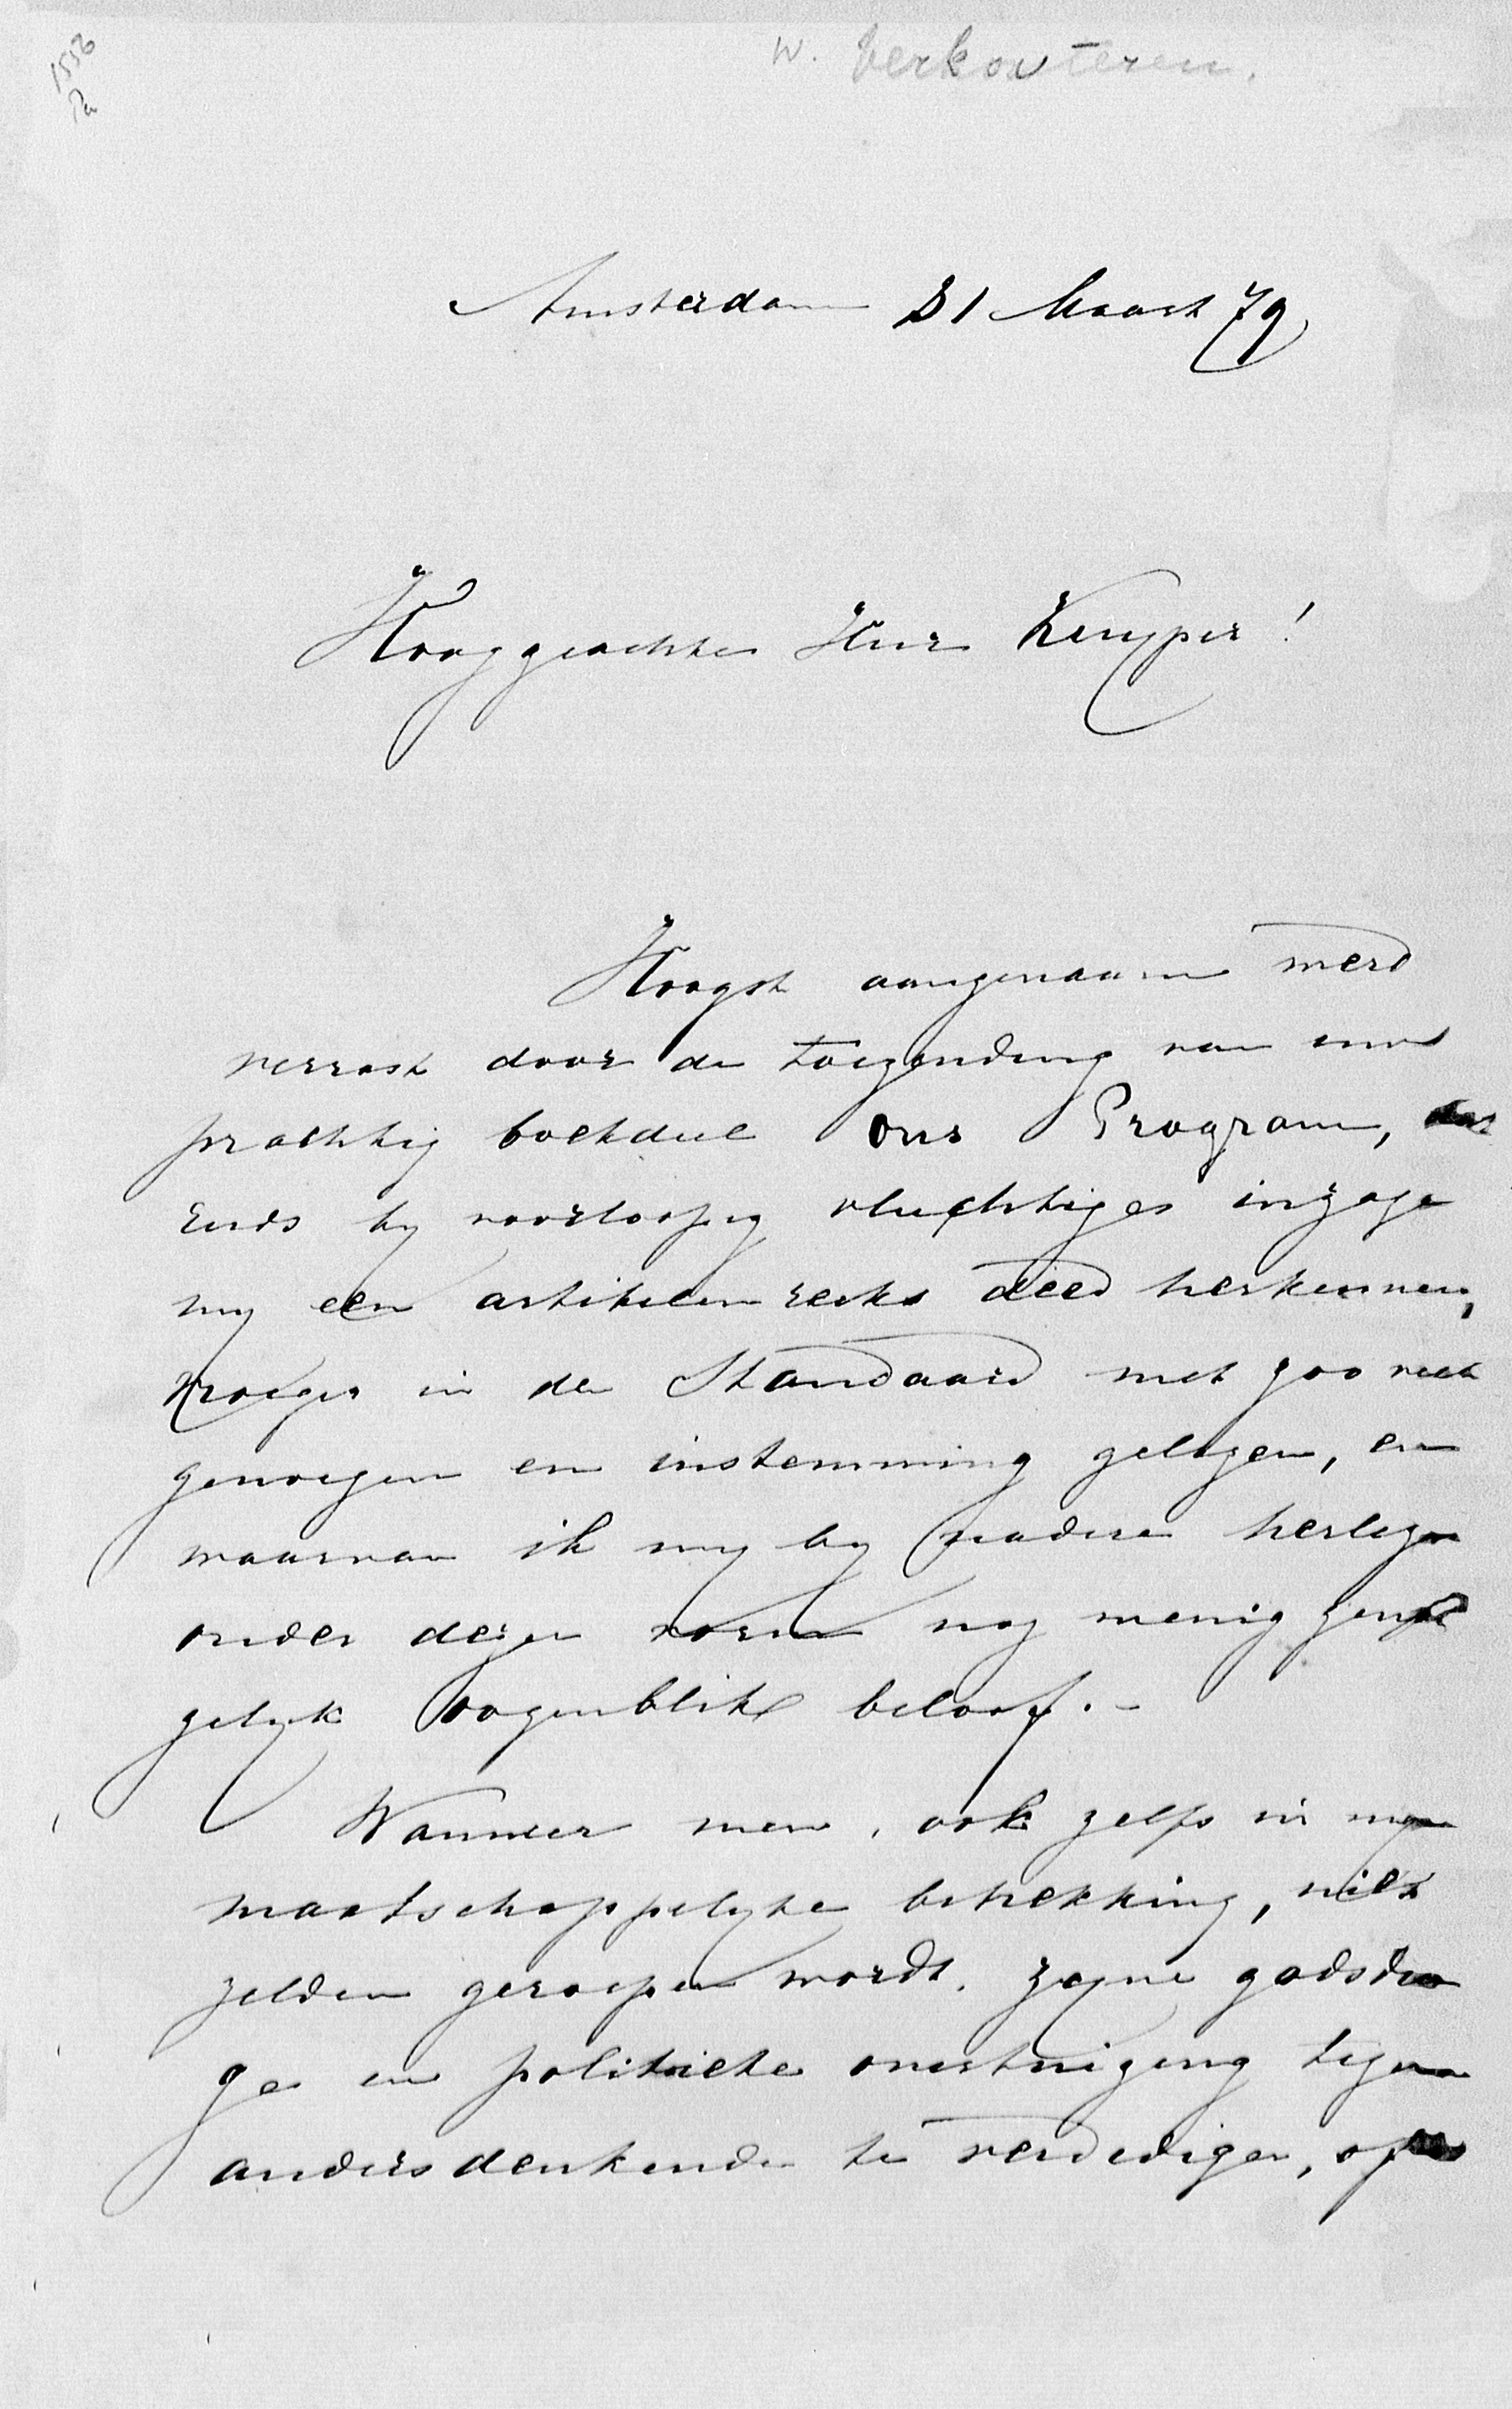 1556
W. Verkouteren.
Amsterdam 31 Maart 79
Hooggeachte Heer Kuyper!
Hoogst aangenaam werd
verrast door de toezending van uw
prachtig boekdeel Ons Program, dat
reeds by voorloopig vluchtiges inzage
my een artikelenreeks deed herkennen,
vroeger in de Standaard met zoo veel
genoegen en instemming gelezen, en
waarvan ik my by nadere herlezen
onder dezen vorm nog menig
gelyk oogenblik beloof. -
Wanneer men, ook zelfs in myn
maatschappelyke betrekking, niet
zelden geroepen wordt, zyne godsdien
ge en politieke overtuiging tegen
andersdenkenden te verdedigen, op